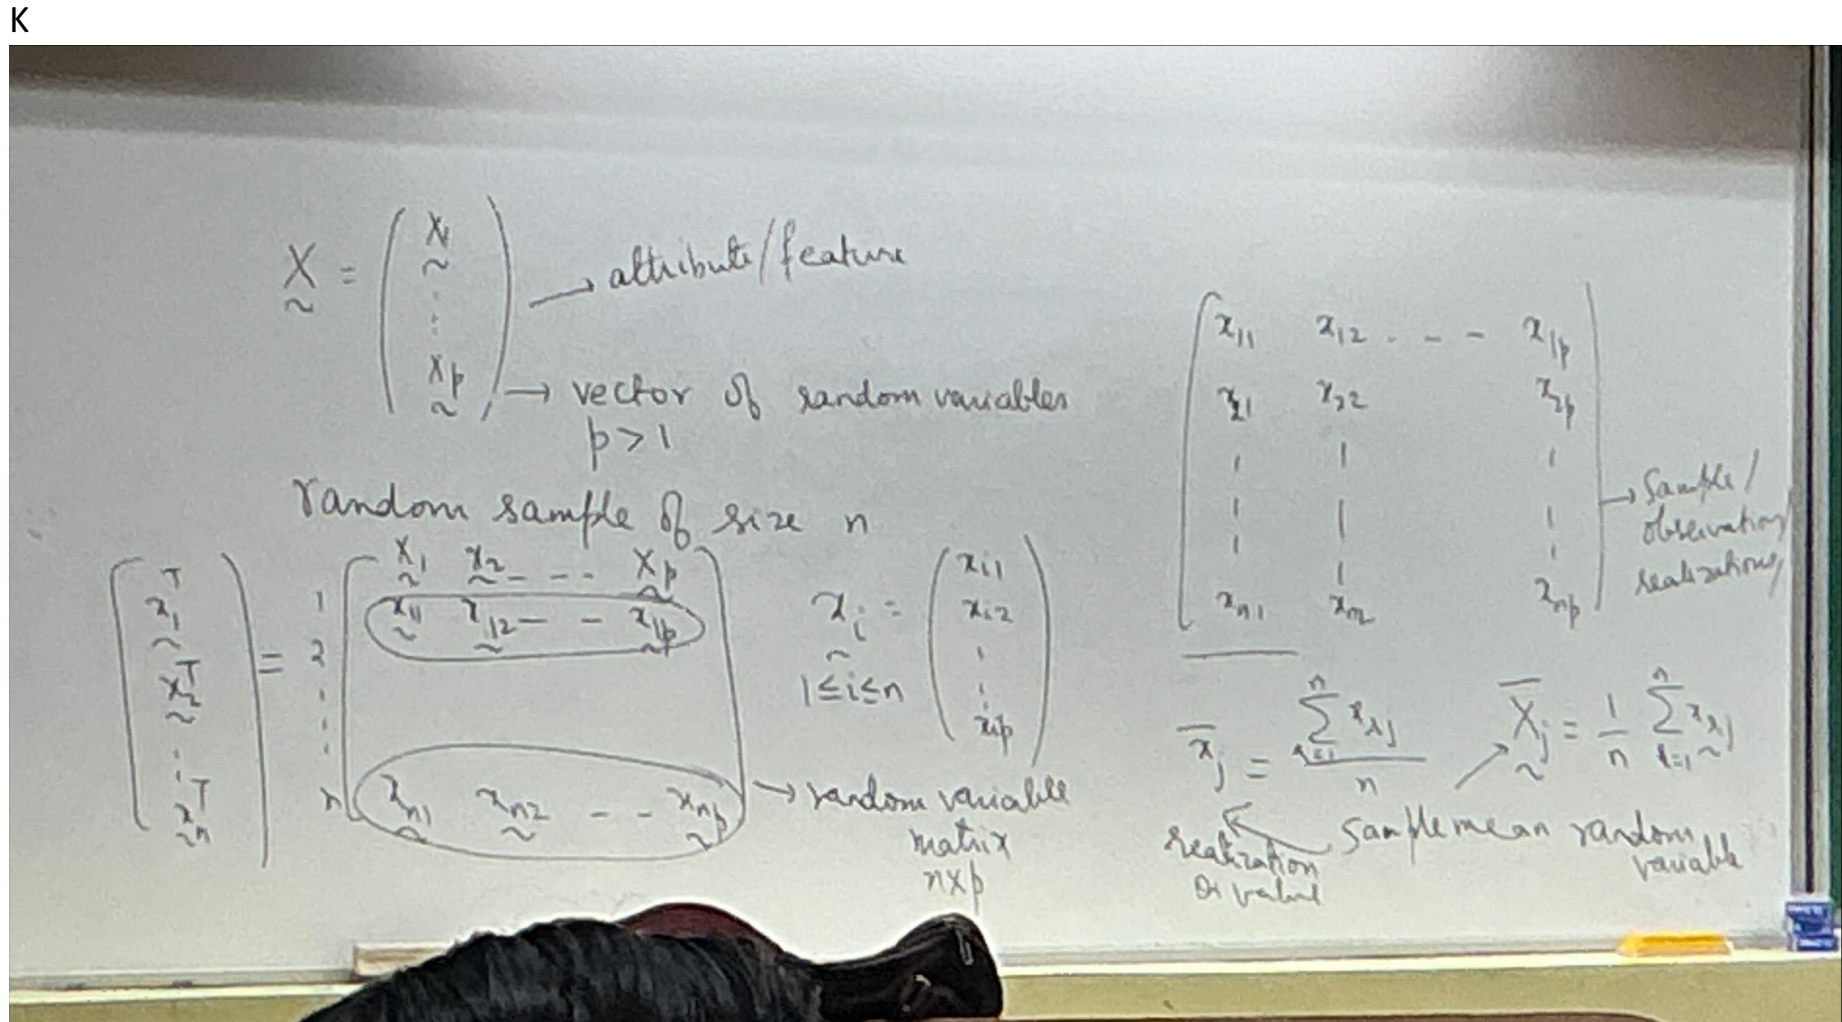 K
X = ( X1 ⋮ Xp )
→ attribute/feature
→ vector of random variables
p > 1
random sample of size n
X1 X2 - - - Xp
( x1ᵀ x2ᵀ ⋮ xnᵀ ) =
1 x11 x12 - - x1p
2
⋮
n xn1 xn2 - - xnp
→ random variable
matrix
n×p
xi = ( xi1 xi2 ⋮ xip )
1≤i≤n
x11 x12 - - - x1p
x21 x22 x2p
xn1 xn2 xnp
→ Sample/
observation/
realizations/
x̄j = Σ xlj / n
X̄j = 1/n Σ xlj
l=1 n
realization
or value
Sample mean random
variable